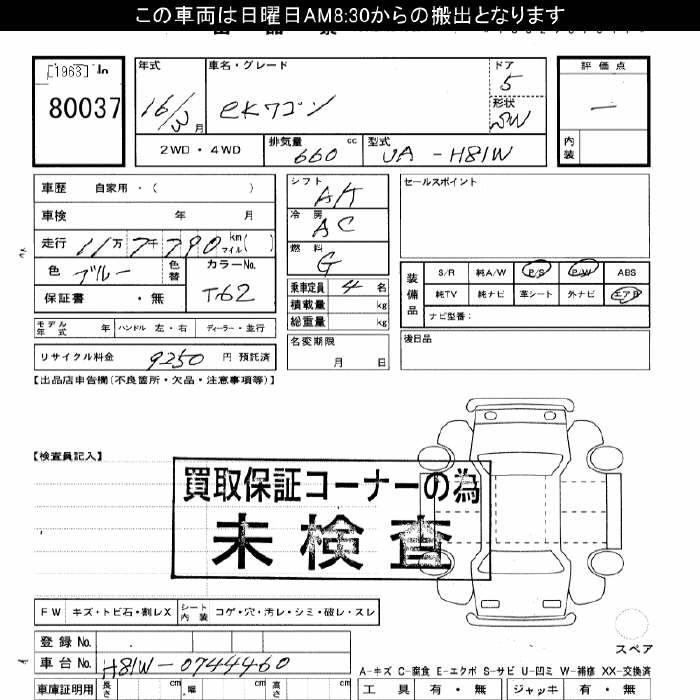 この車両は日曜日AM8:30からの搬出となります
[1963]
80037
年式 車名・グレード ドア 評価点
16/3月 eKワゴン 5
形状 SW
2WD・4WD 排気量 660 cc 型式 UA-H81W 内装
車歴 自家用・( )
シフト AT
セールスポイント
車検 年 月
冷房 AC
走行 11万7千790 km マイル( )
燃料 G
色 ブルー 色替 カラーNo. T62
装備品 S/R 純A/W P/S P/W ABS
保証書 ・無
乗車定員 4名
純TV 純ナビ 革シート 外ナビ エアB
積載量 kg
ナビ型番:
総重量 kg
モデル年式 年 ハンドル 左・右 ディーラー・並行
名変期限 月 日
後日品
リサイクル料金 9250 円 預託済
【出品店申告欄(不良箇所・欠品・注意事項等)】
【検査員記入】
買取保証コーナーの為
未検査
FW キズ・トビ石・割レX シート内装 コゲ・穴・汚レ・シミ・破レ・スレ
スペア
登録No.
車台No. H81W-0744460
A-キズ C-腐食 E-エクボ S-サビ U-凹ミ W-補修 XX-交換済
車庫証明用 長さ cm 幅 cm 高さ cm
工具 有・無 ジャッキ 有・無